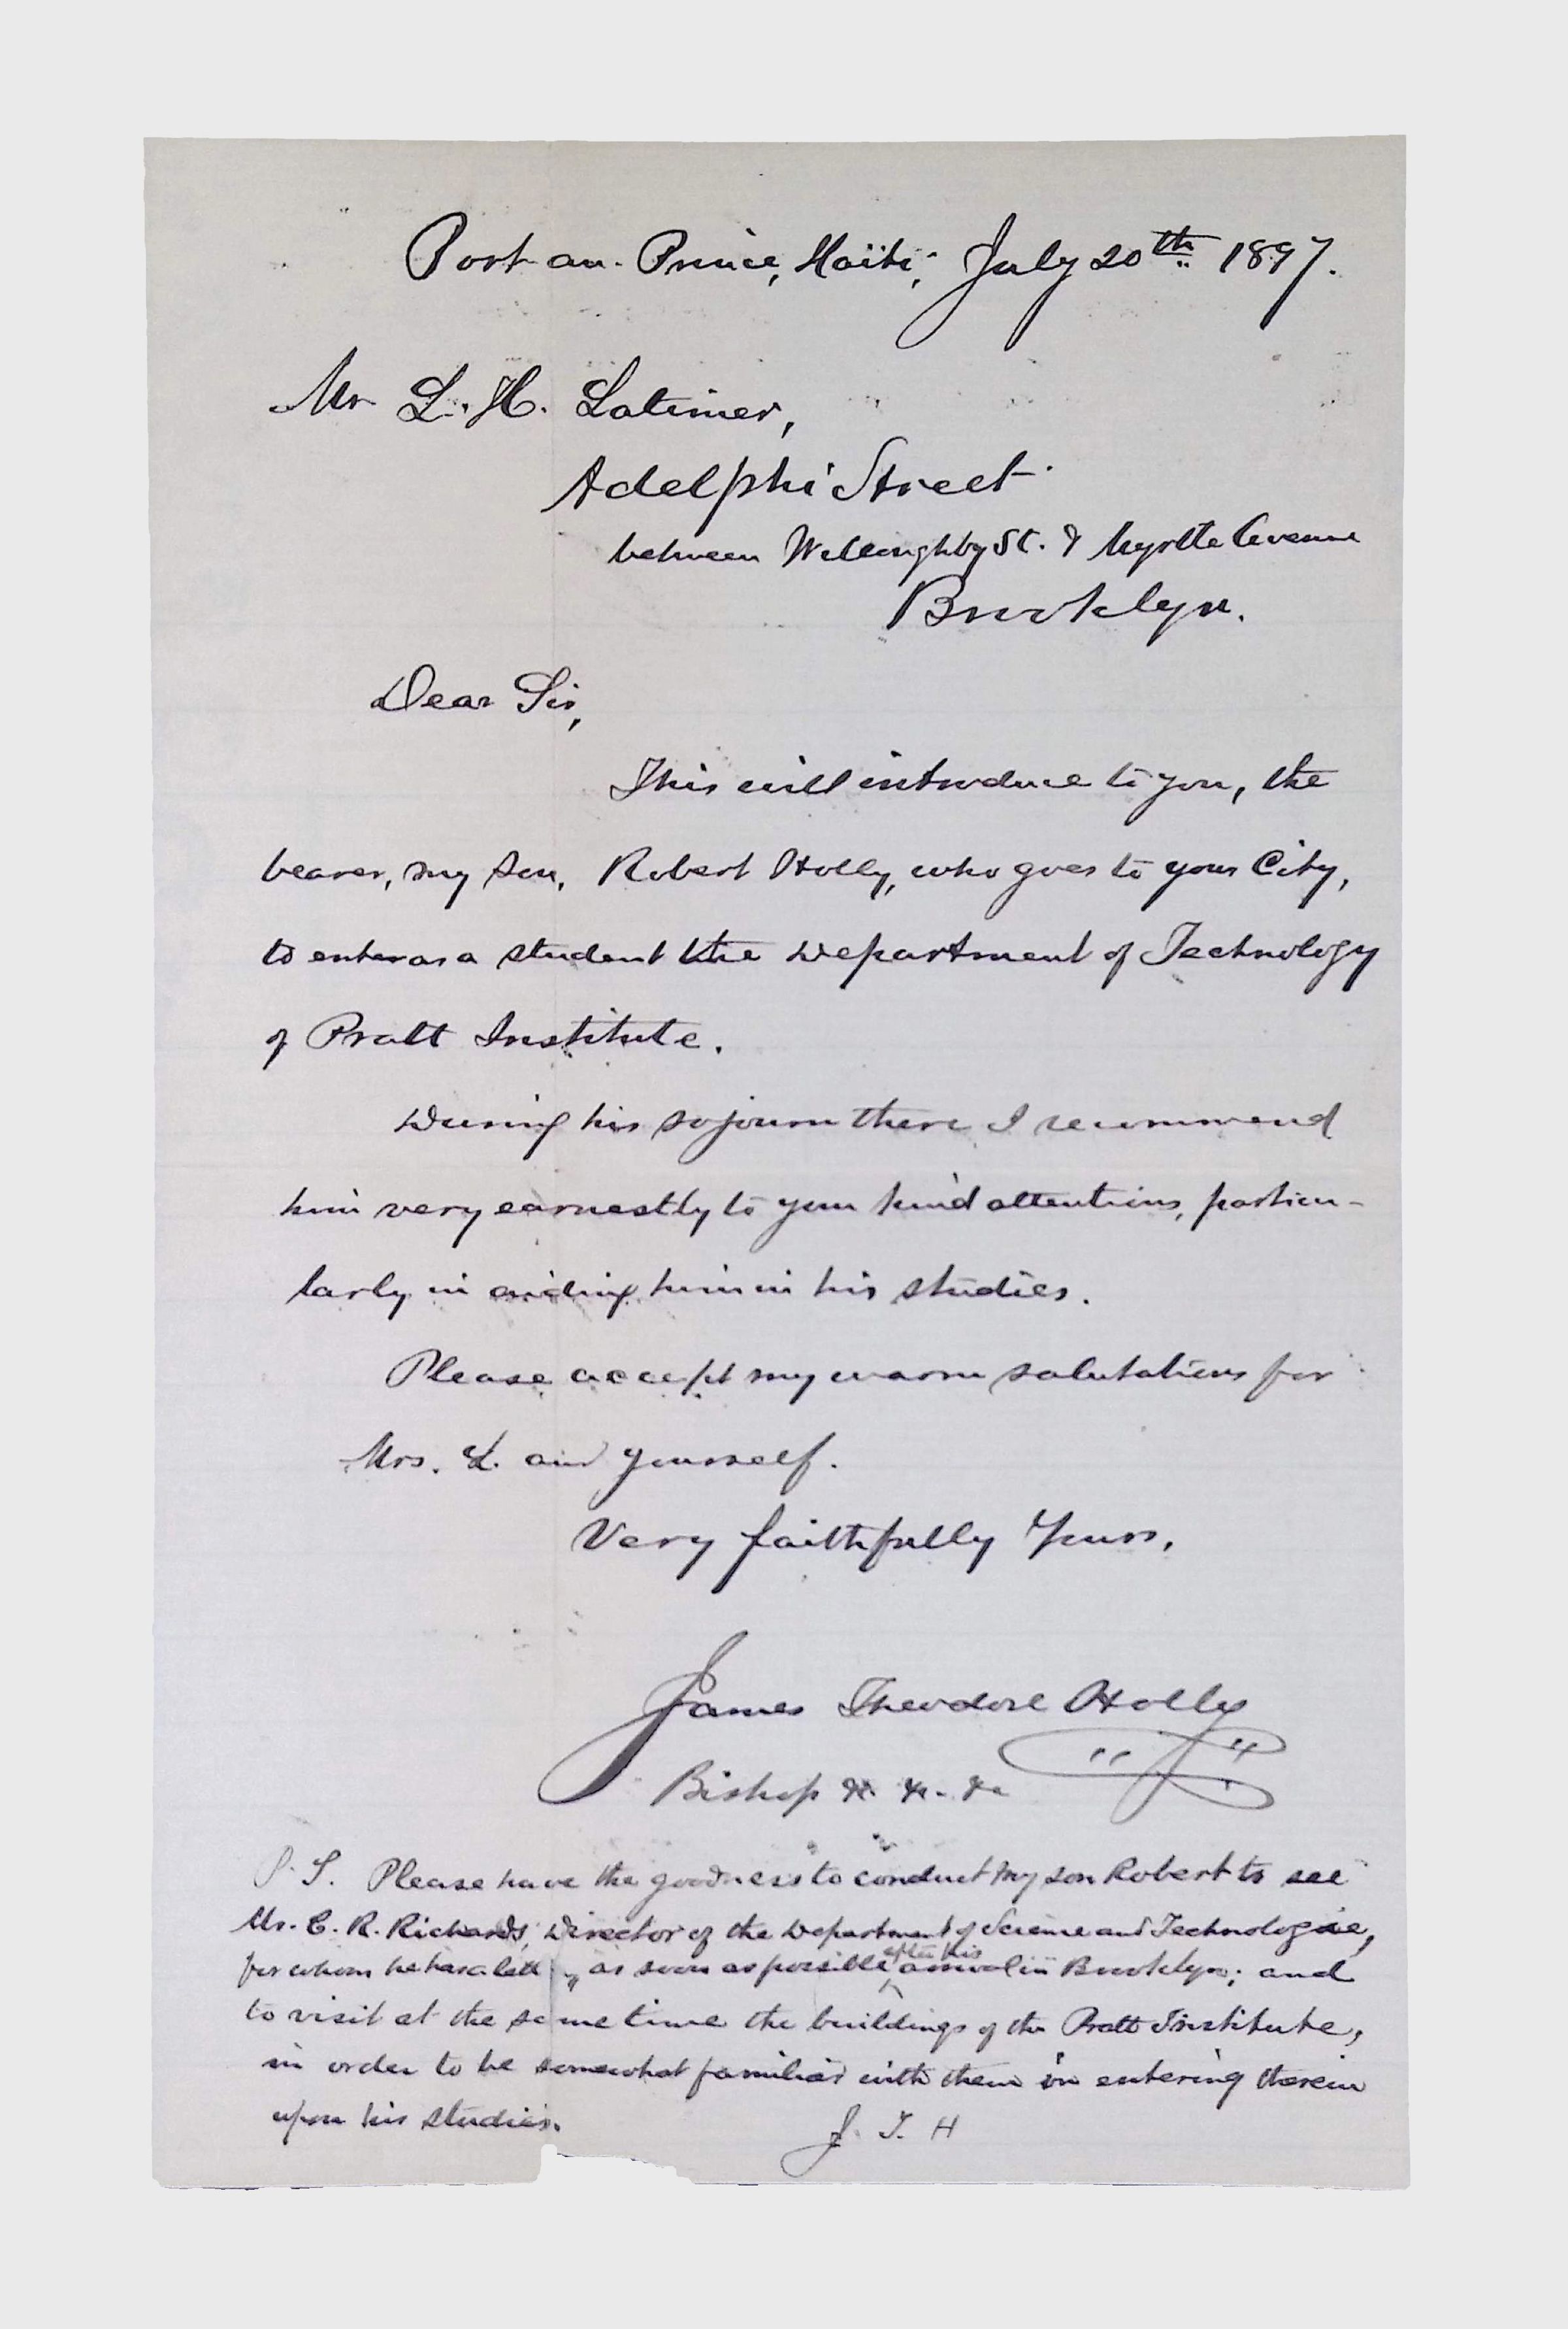 Port-au-Prince, Haïti, July 20th 1897.
Mr L. H. Latimer,
Adelphi Street
between Willoughby St. & Myrtle Avenue
Brooklyn.
Dear Sir,
This will introduce to you, the
bearer, my son, Robert Holly, who goes to your City,
to enter as a student the Department of Technology
of Pratt Institute.
During his sojourn there I recommend
him very earnestly to your kind attentions, particu-
larly in aiding him in his studies.
Please accept my warm salutations for
Mrs. L. and yourself.
Very faithfully Yours,
James Theodore Holly
Bishop &c. &c. &c
P.S. Please have the goodness to conduct my son Robert to see
Mr. C. R. Richards, Director of the Department of Science and Technologie,
for whom he has a letter, as soon as possible after his arrival in Brooklyn; and
to visit at the same time the buildings of the Pratt Institute,
in order to be somewhat familiar with them in entering therein
upon his studies.
J. T. H